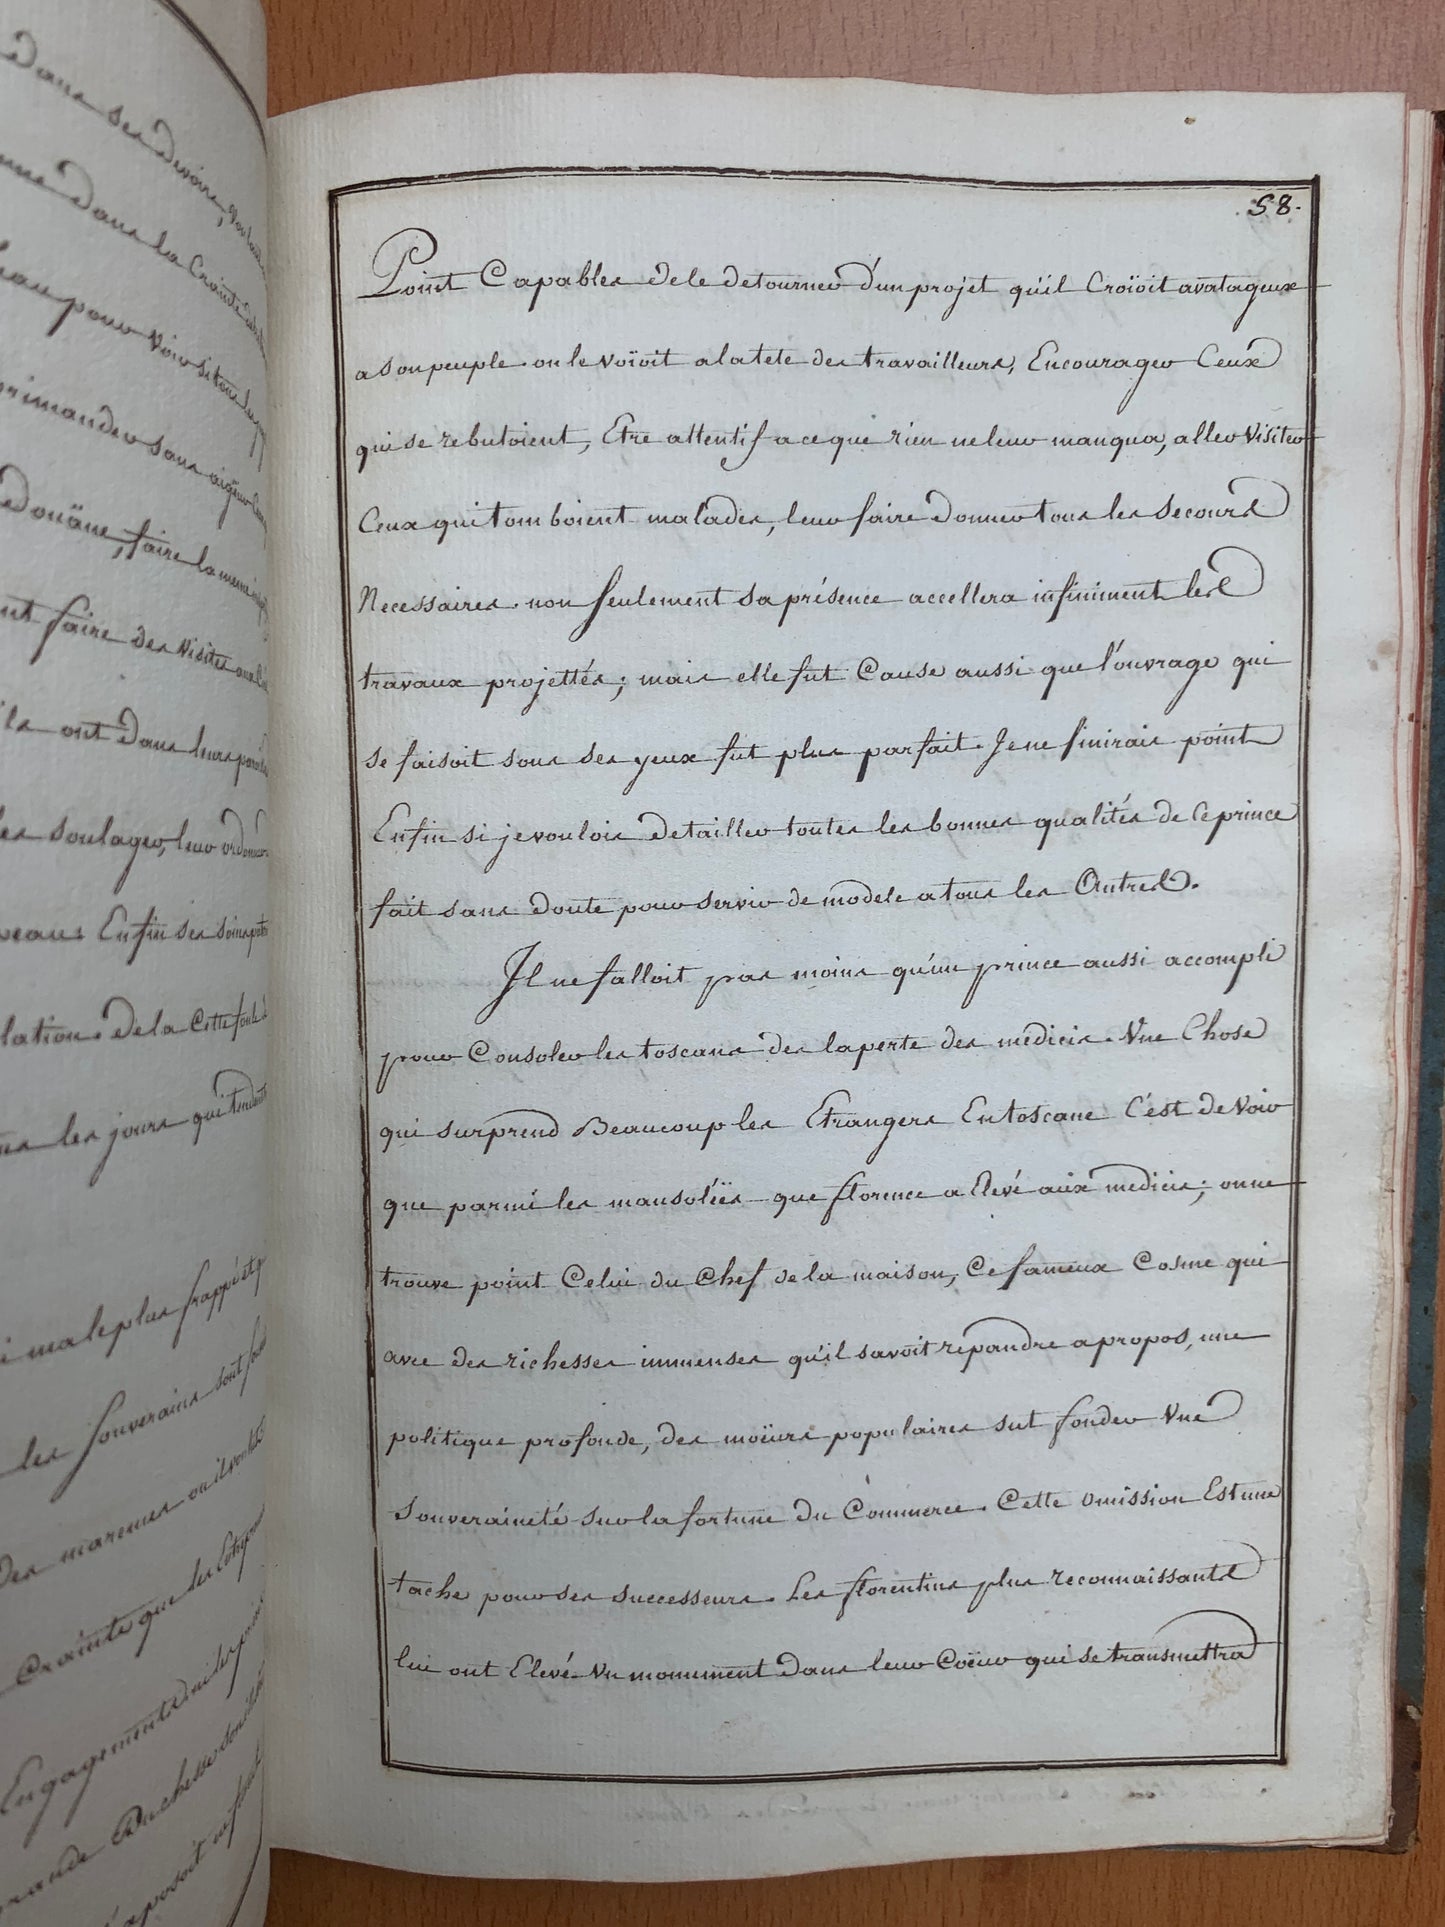 Dans ses devoirs,
dans la Crainte
pour voir si tous
sans aigeur
Doüane, faire la meme
faire des Visites
ont dans leurs
soulager, leur
Enfin ses soins
lation. de la Cette foule
les jours qui tendent
male plus frappé
les souverains sont
des maremes ou
Crainte que les
Engagements
Duchesse son
58.
Point Capables de le detourner d'un projet qu'il Croïoit avatageux
a son peuple. on le voïoit a la tete des travailleurs, Encourager Ceux
qui se rebutoient, Etre attentif a ce que rien ne leur manqua, aller Visiter
Ceux qui tomboient malades, leur faire donner tous les secours
Necessaires. non seulement sa présence accellera infiniment les
travaux projettés; mais elle fut Cause aussi que l'ouvrage qui
se faisoit sous ses yeux fut plus parfait. Je ne finirais point
Enfin si je voulois detailler toutes les bonnes qualités de Ce prince
fait sans doute pour servir de modele a tous les Autres.
Il ne falloit pas moins qu'un prince aussi accompli
pour Consoler les toscans des la perte des medicis. Une Chose
qui surprend Beaucoup les Etrangers En toscane C'est de Voir
que parmi les mausoléïs que florence a Elevé aux medicis; on ne
trouve point Celui du Chef de la maison, Ce fameux Cosme qui
avec des richesses immenses qu'il savoit repandre a propos, une
politique profonde, des moïurs populaires sut fonder Une
souveraineté sur la fortune du Commerce. Cette omission Est une
tache pour ses successeurs. Les florentins plus reconnaissants
lui ont Elevé Un monument dans leur Coëur qui se transmettra